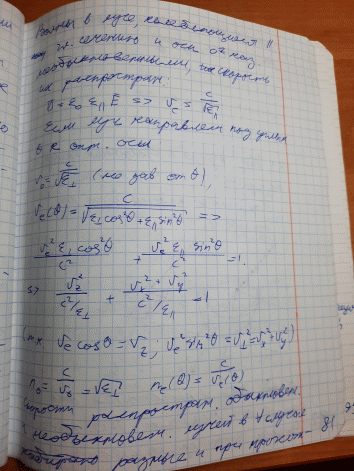 Волны в луче, колеблющиеся ||
гл. сечению и оси наз
необыкновенными, их скорость
их распростран.
D = ε₀ ε|| E => v_e = c/√ε||
Если луч направлен под углом
θ к опт. оси
v₀ = c/√ε⊥ (не зав. от θ),
v_e(θ) = c/√(ε⊥cos²θ + ε||sin²θ) =>
v_e² ε⊥ cos²θ/c² + v_e² ε|| sin²θ/c² = 1.
=> v_z²/(c²/ε⊥) + (v_x² + v_y²)/(c²/ε||) = 1
(т.к. v_e cosθ = v_z; v_e² sin²θ = v⊥² = v_x² + v_y²)
n₀ = c/v₀ = √ε⊥ n_e(θ) = c/v_e(θ)
скорости распростран. обыкновен.
и необыкновен. лучей в случае
разные и при прохож-